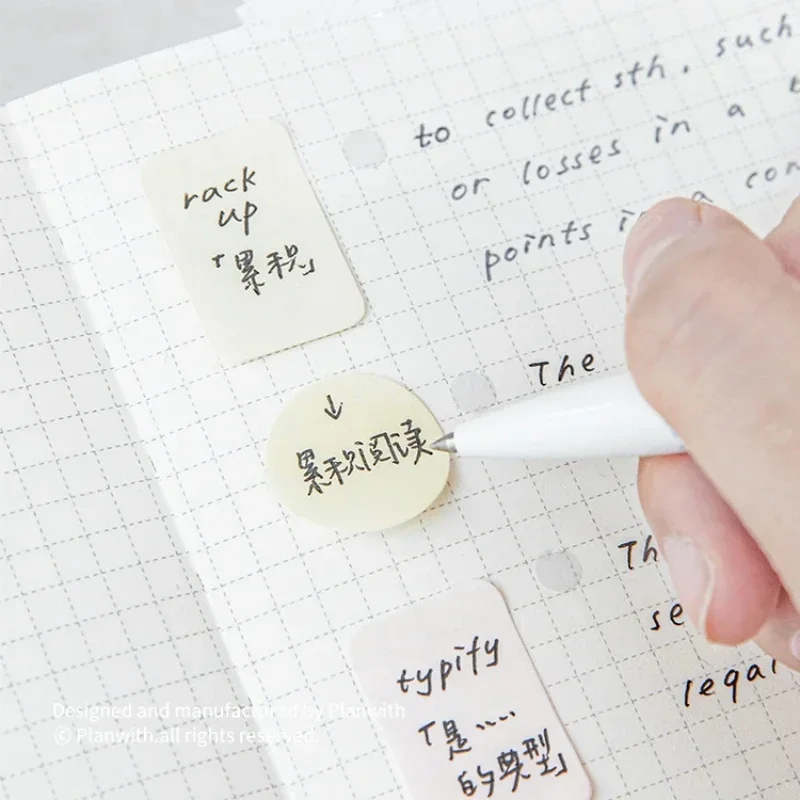 rack
up
「累积」
↓
累积阅读
typify
「是....
的典型」
to collect sth. such
or losses in a
points in a con
The
Th
se
legal
Designed and manufactured by Planwith
© Planwith.all rights reserved.